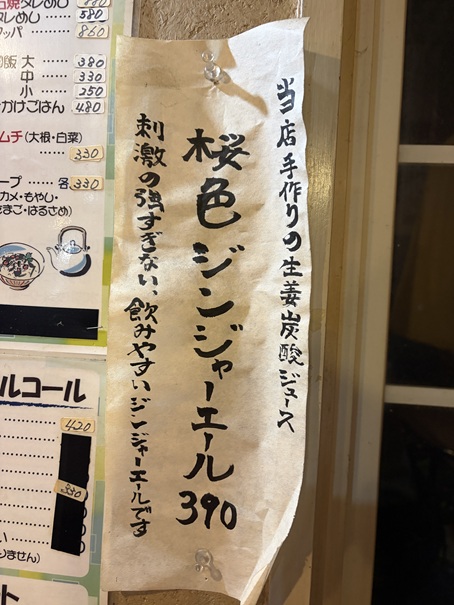 当店手作りの生姜炭酸ジュース
桜色ジンジャーエール390
刺激の強すぎない、飲みやすいジンジャーエールです
580
860
大 ……… 380
中 ……… 330
小 ……… 250
かけごはん 480
ムチ(大根・白菜)
……… 330
ープ ……… 各330
カメ・もやし・
たまご・はるさめ)
ルコール
420
330
りません)